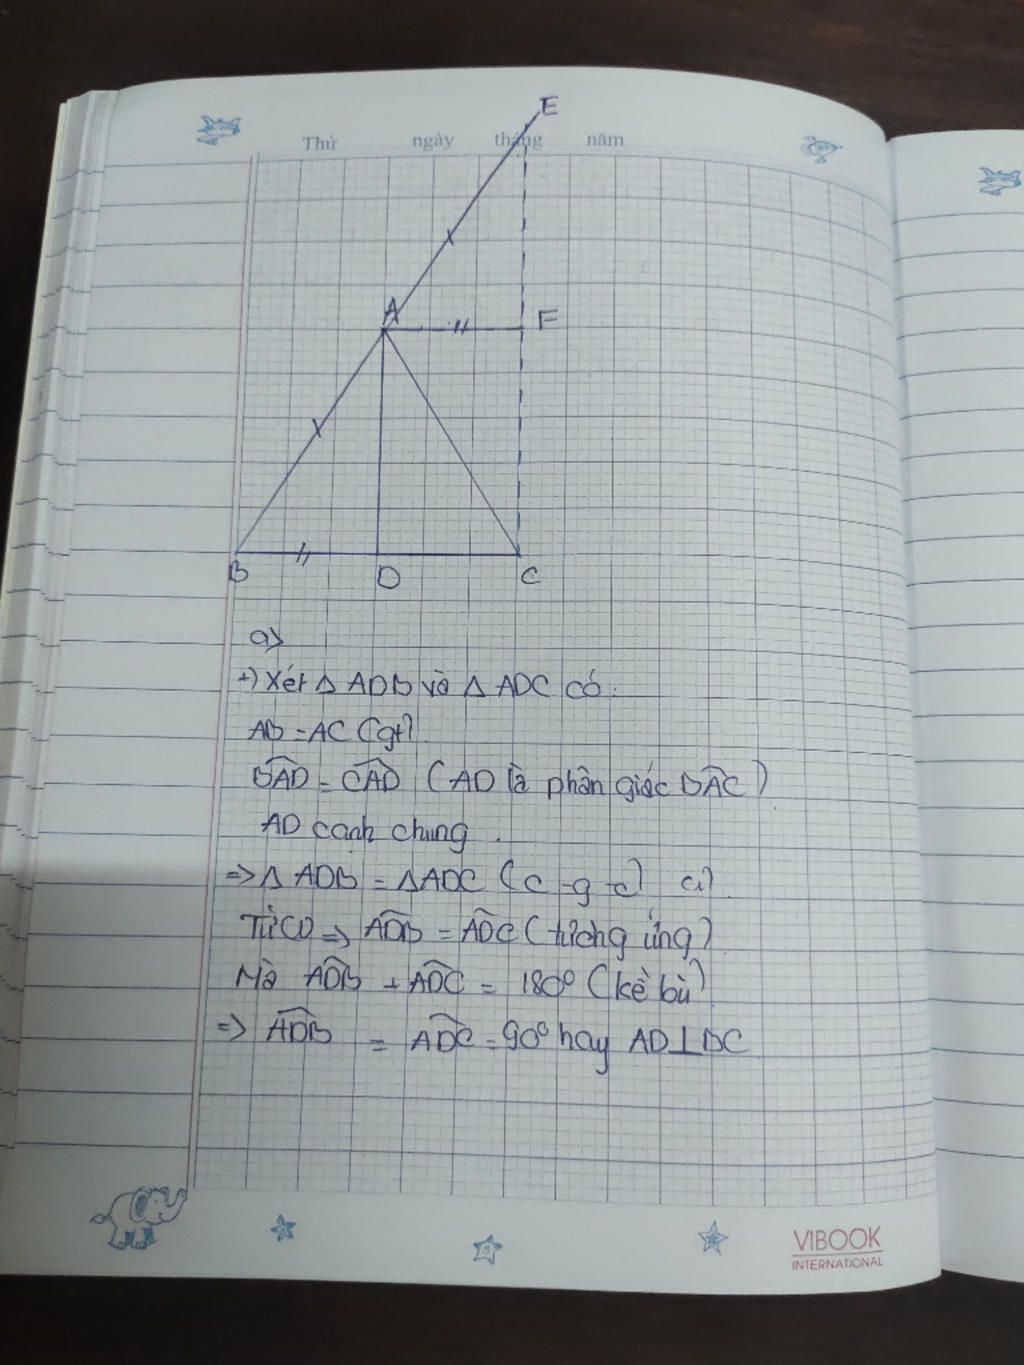 E
Thứ ngày tháng năm
A
F
B D C
a)
+) Xét Δ ADB và Δ ADC có
AB = AC (gt)
BAD = CAD (AD là phân giác BAC)
AD cạnh chung.
=> Δ ADB = Δ ADC (c-g-c) (1)
Từ (1) => ADB = ADC (tương ứng)
Mà ADB + ADC = 180° (kề bù)
=> ADB = ADC = 90° hay AD⊥BC
VIBOOK
INTERNATIONAL